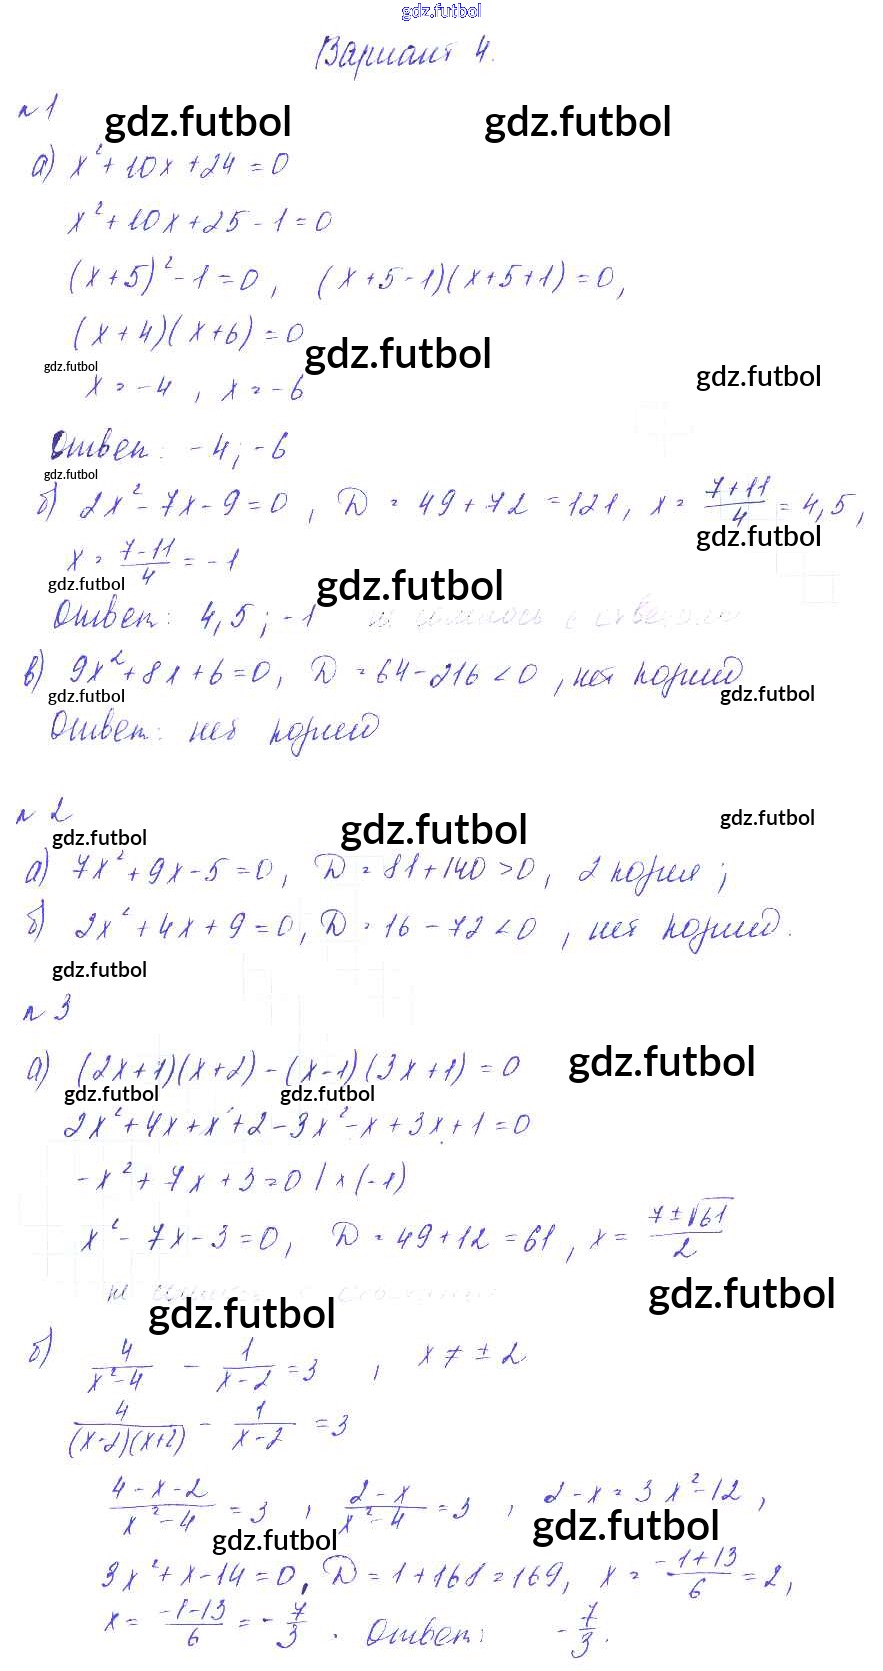 gdz.futbol
Вариант 4.
n 1
gdz.futbol gdz.futbol
а) x² + 10x + 24 = 0
x² + 10x + 25 - 1 = 0
(x+5)² - 1 = 0, (x+5-1)(x+5+1) = 0,
(x+4)(x+6) = 0
gdz.futbol gdz.futbol gdz.futbol
x = -4, x = -6
Ответ: -4; -6
gdz.futbol
б) 2x² - 7x - 9 = 0, D = 49 + 72 = 121, x = (7+11)/4 = 4,5,
gdz.futbol
x = (7-11)/4 = -1
gdz.futbol gdz.futbol
Ответ: 4,5; -1
в) 9x² + 8x + 6 = 0, D = 64 - 216 < 0, нет корней
gdz.futbol gdz.futbol
Ответ: нет корней
n 2
gdz.futbol gdz.futbol gdz.futbol
а) 7x² + 9x - 5 = 0, D = 81 + 140 > 0, 2 корня;
б) 2x² + 4x + 9 = 0, D = 16 - 72 < 0, нет корней.
gdz.futbol
n 3
а) (2x+1)(x+2) - (x-1)(3x+1) = 0
gdz.futbol gdz.futbol gdz.futbol
2x² + 4x + x + 2 - 3x² - x + 3x + 1 = 0
-x² + 7x + 3 = 0 | × (-1)
x² - 7x - 3 = 0, D = 49 + 12 = 61, x = (7±√61)/2
gdz.futbol gdz.futbol
б) 4/(x²-4) - 1/(x-2) = 3, x ≠ ± 2
4/((x-2)(x+2)) - 1/(x-2) = 3
(4-x-2)/(x²-4) = 3, (2-x)/(x²-4) = 3, 2-x = 3x²-12,
gdz.futbol gdz.futbol
3x² + x - 14 = 0, D = 1 + 168 = 169, x = (-1+13)/6 = 2,
x = (-1-13)/6 = -7/3. Ответ: -7/3.